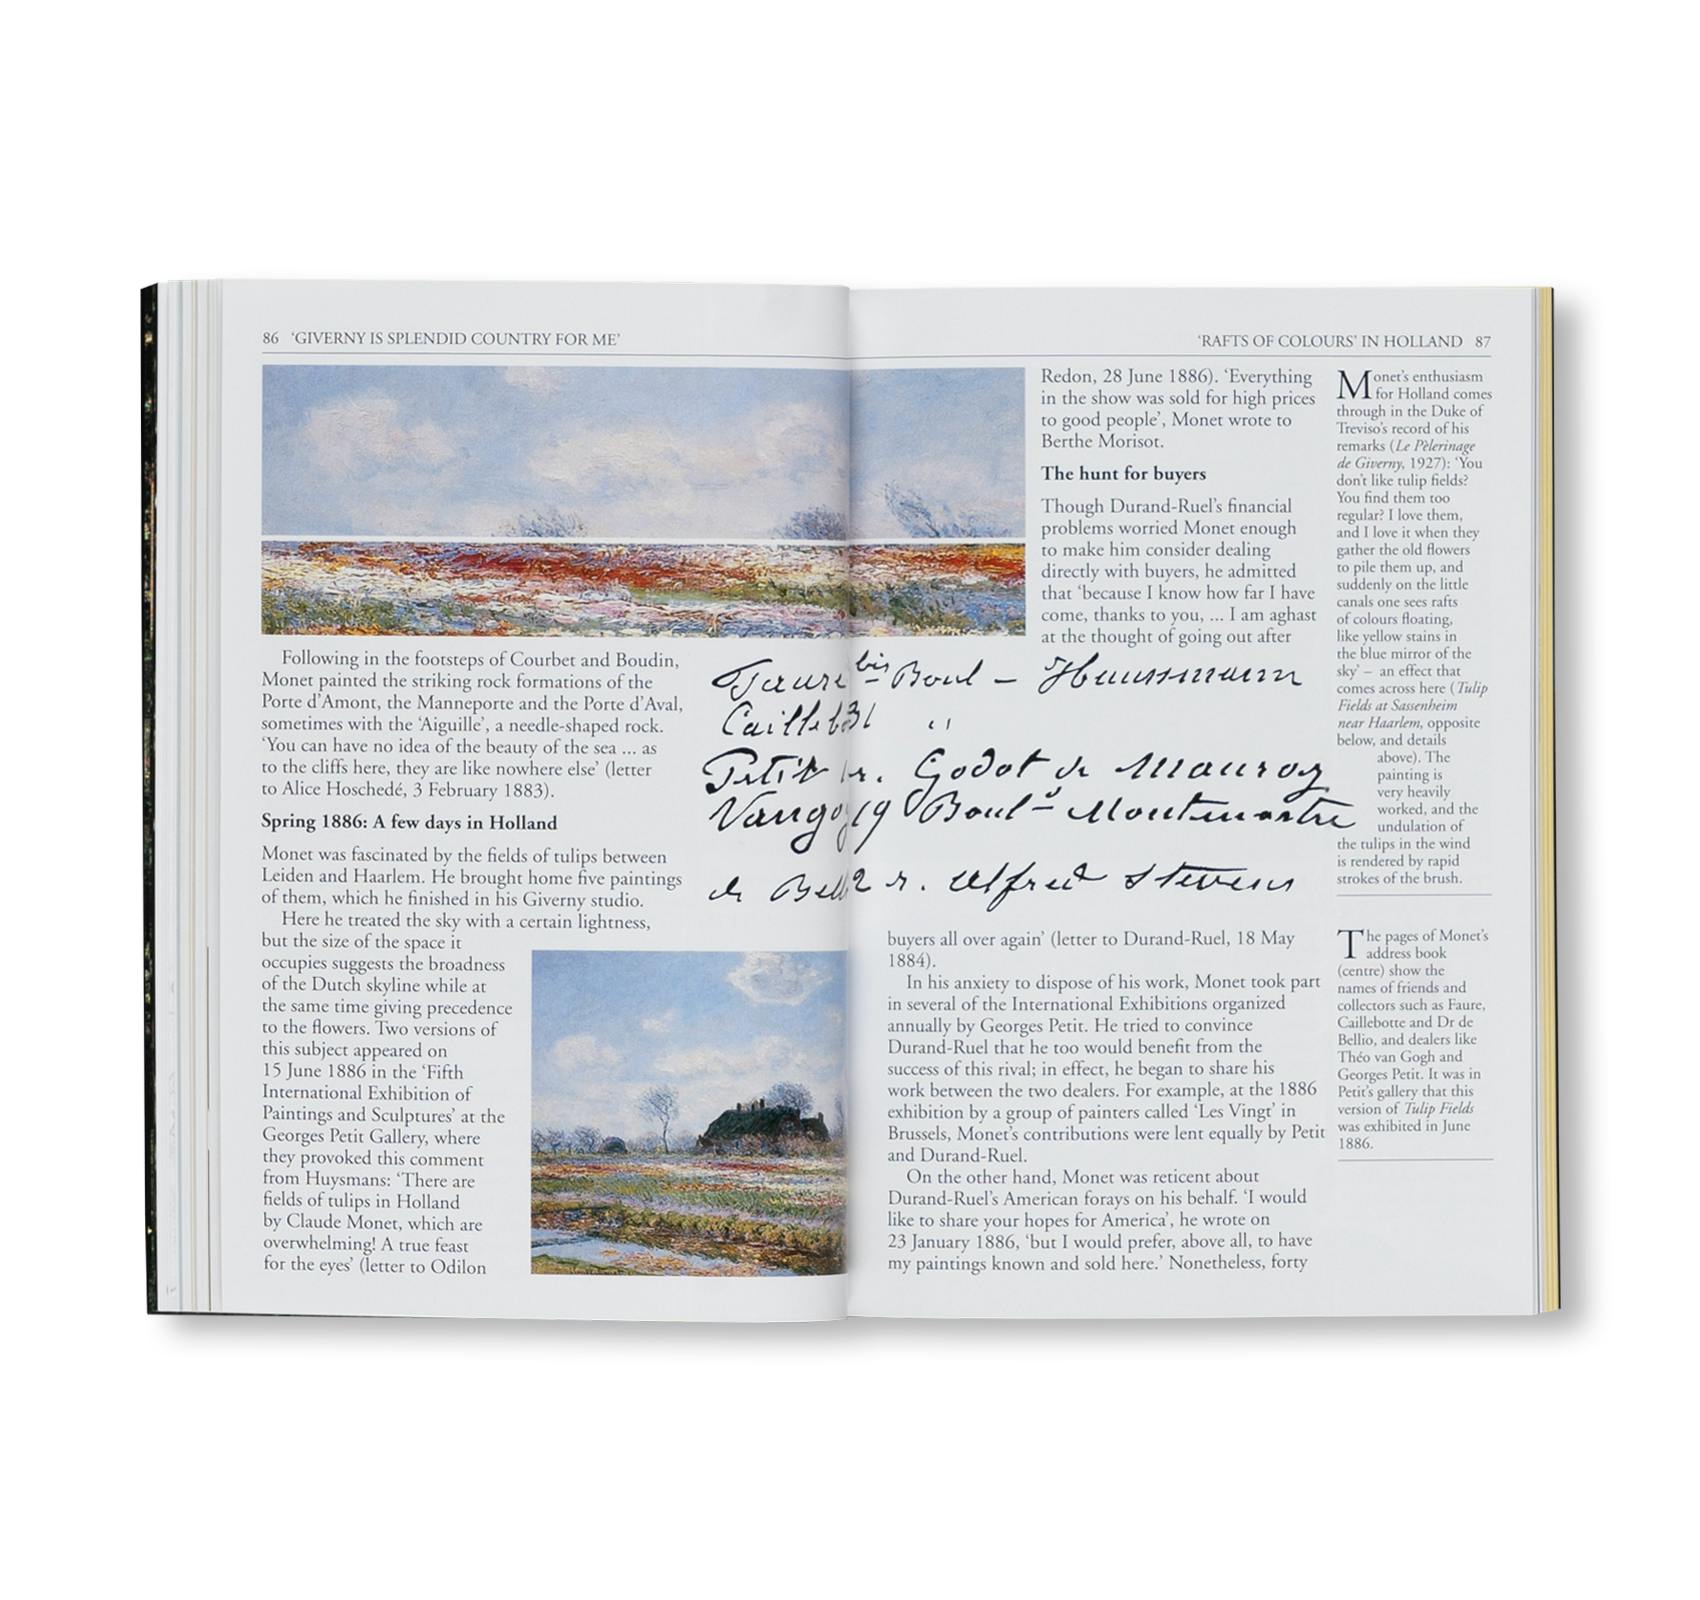 86 ‘GIVERNY IS SPLENDID COUNTRY FOR ME’
Following in the footsteps of Courbet and Boudin,
Monet painted the striking rock formations of the
Porte d’Amont, the Manneporte and the Porte d’Aval,
sometimes with the ‘Aiguille’, a needle-shaped rock.
‘You can have no idea of the beauty of the sea ... as
to the cliffs here, they are like nowhere else’ (letter
to Alice Hoschedé, 3 February 1883).
Spring 1886: A few days in Holland
Monet was fascinated by the fields of tulips between
Leiden and Haarlem. He brought home five paintings
of them, which he finished in his Giverny studio.
Here he treated the sky with a certain lightness,
but the size of the space it
occupies suggests the broadness
of the Dutch skyline while at
the same time giving precedence
to the flowers. Two versions of
this subject appeared on
15 June 1886 in the ‘Fifth
International Exhibition of
Paintings and Sculptures’ at the
Georges Petit Gallery, where
they provoked this comment
from Huysmans: ‘There are
fields of tulips in Holland
by Claude Monet, which are
overwhelming! A true feast
for the eyes’ (letter to Odilon
‘RAFTS OF COLOURS’ IN HOLLAND 87
Redon, 28 June 1886). ‘Everything
in the show was sold for high prices
to good people’, Monet wrote to
Berthe Morisot.
The hunt for buyers
Though Durand-Ruel’s financial
problems worried Monet enough
to make him consider dealing
directly with buyers, he admitted
that ‘because I know how far I have
come, thanks to you, ... I am aghast
at the thought of going out after
Faure bis Boul – Haussmann
Cailleb 31 "
Petit r. Godot de Mauroy
Vango 19 Boul d Montmartre
de Bell 2 r. Alfred Stevens
buyers all over again’ (letter to Durand-Ruel, 18 May
1884).
In his anxiety to dispose of his work, Monet took part
in several of the International Exhibitions organized
annually by Georges Petit. He tried to convince
Durand-Ruel that he too would benefit from the
success of this rival; in effect, he began to share his
work between the two dealers. For example, at the 1886
exhibition by a group of painters called ‘Les Vingt’ in
Brussels, Monet’s contributions were lent equally by Petit
and Durand-Ruel.
On the other hand, Monet was reticent about
Durand-Ruel’s American forays on his behalf. ‘I would
like to share your hopes for America’, he wrote on
23 January 1886, ‘but I would prefer, above all, to have
my paintings known and sold here.’ Nonetheless, forty
Monet’s enthusiasm
for Holland comes
through in the Duke of
Treviso’s record of his
remarks (Le Pèlerinage
de Giverny, 1927): ‘You
don’t like tulip fields?
You find them too
regular? I love them,
and I love it when they
gather the old flowers
to pile them up, and
suddenly on the little
canals one sees rafts
of colours floating,
like yellow stains in
the blue mirror of the
sky’ – an effect that
comes across here (Tulip
Fields at Sassenheim
near Haarlem, opposite
below, and details
above). The
painting is
very heavily
worked, and the
undulation of
the tulips in the wind
is rendered by rapid
strokes of the brush.
The pages of Monet’s
address book
(centre) show the
names of friends and
collectors such as Faure,
Caillebotte and Dr de
Bellio, and dealers like
Théo van Gogh and
Georges Petit. It was in
Petit’s gallery that this
version of Tulip Fields
was exhibited in June
1886.